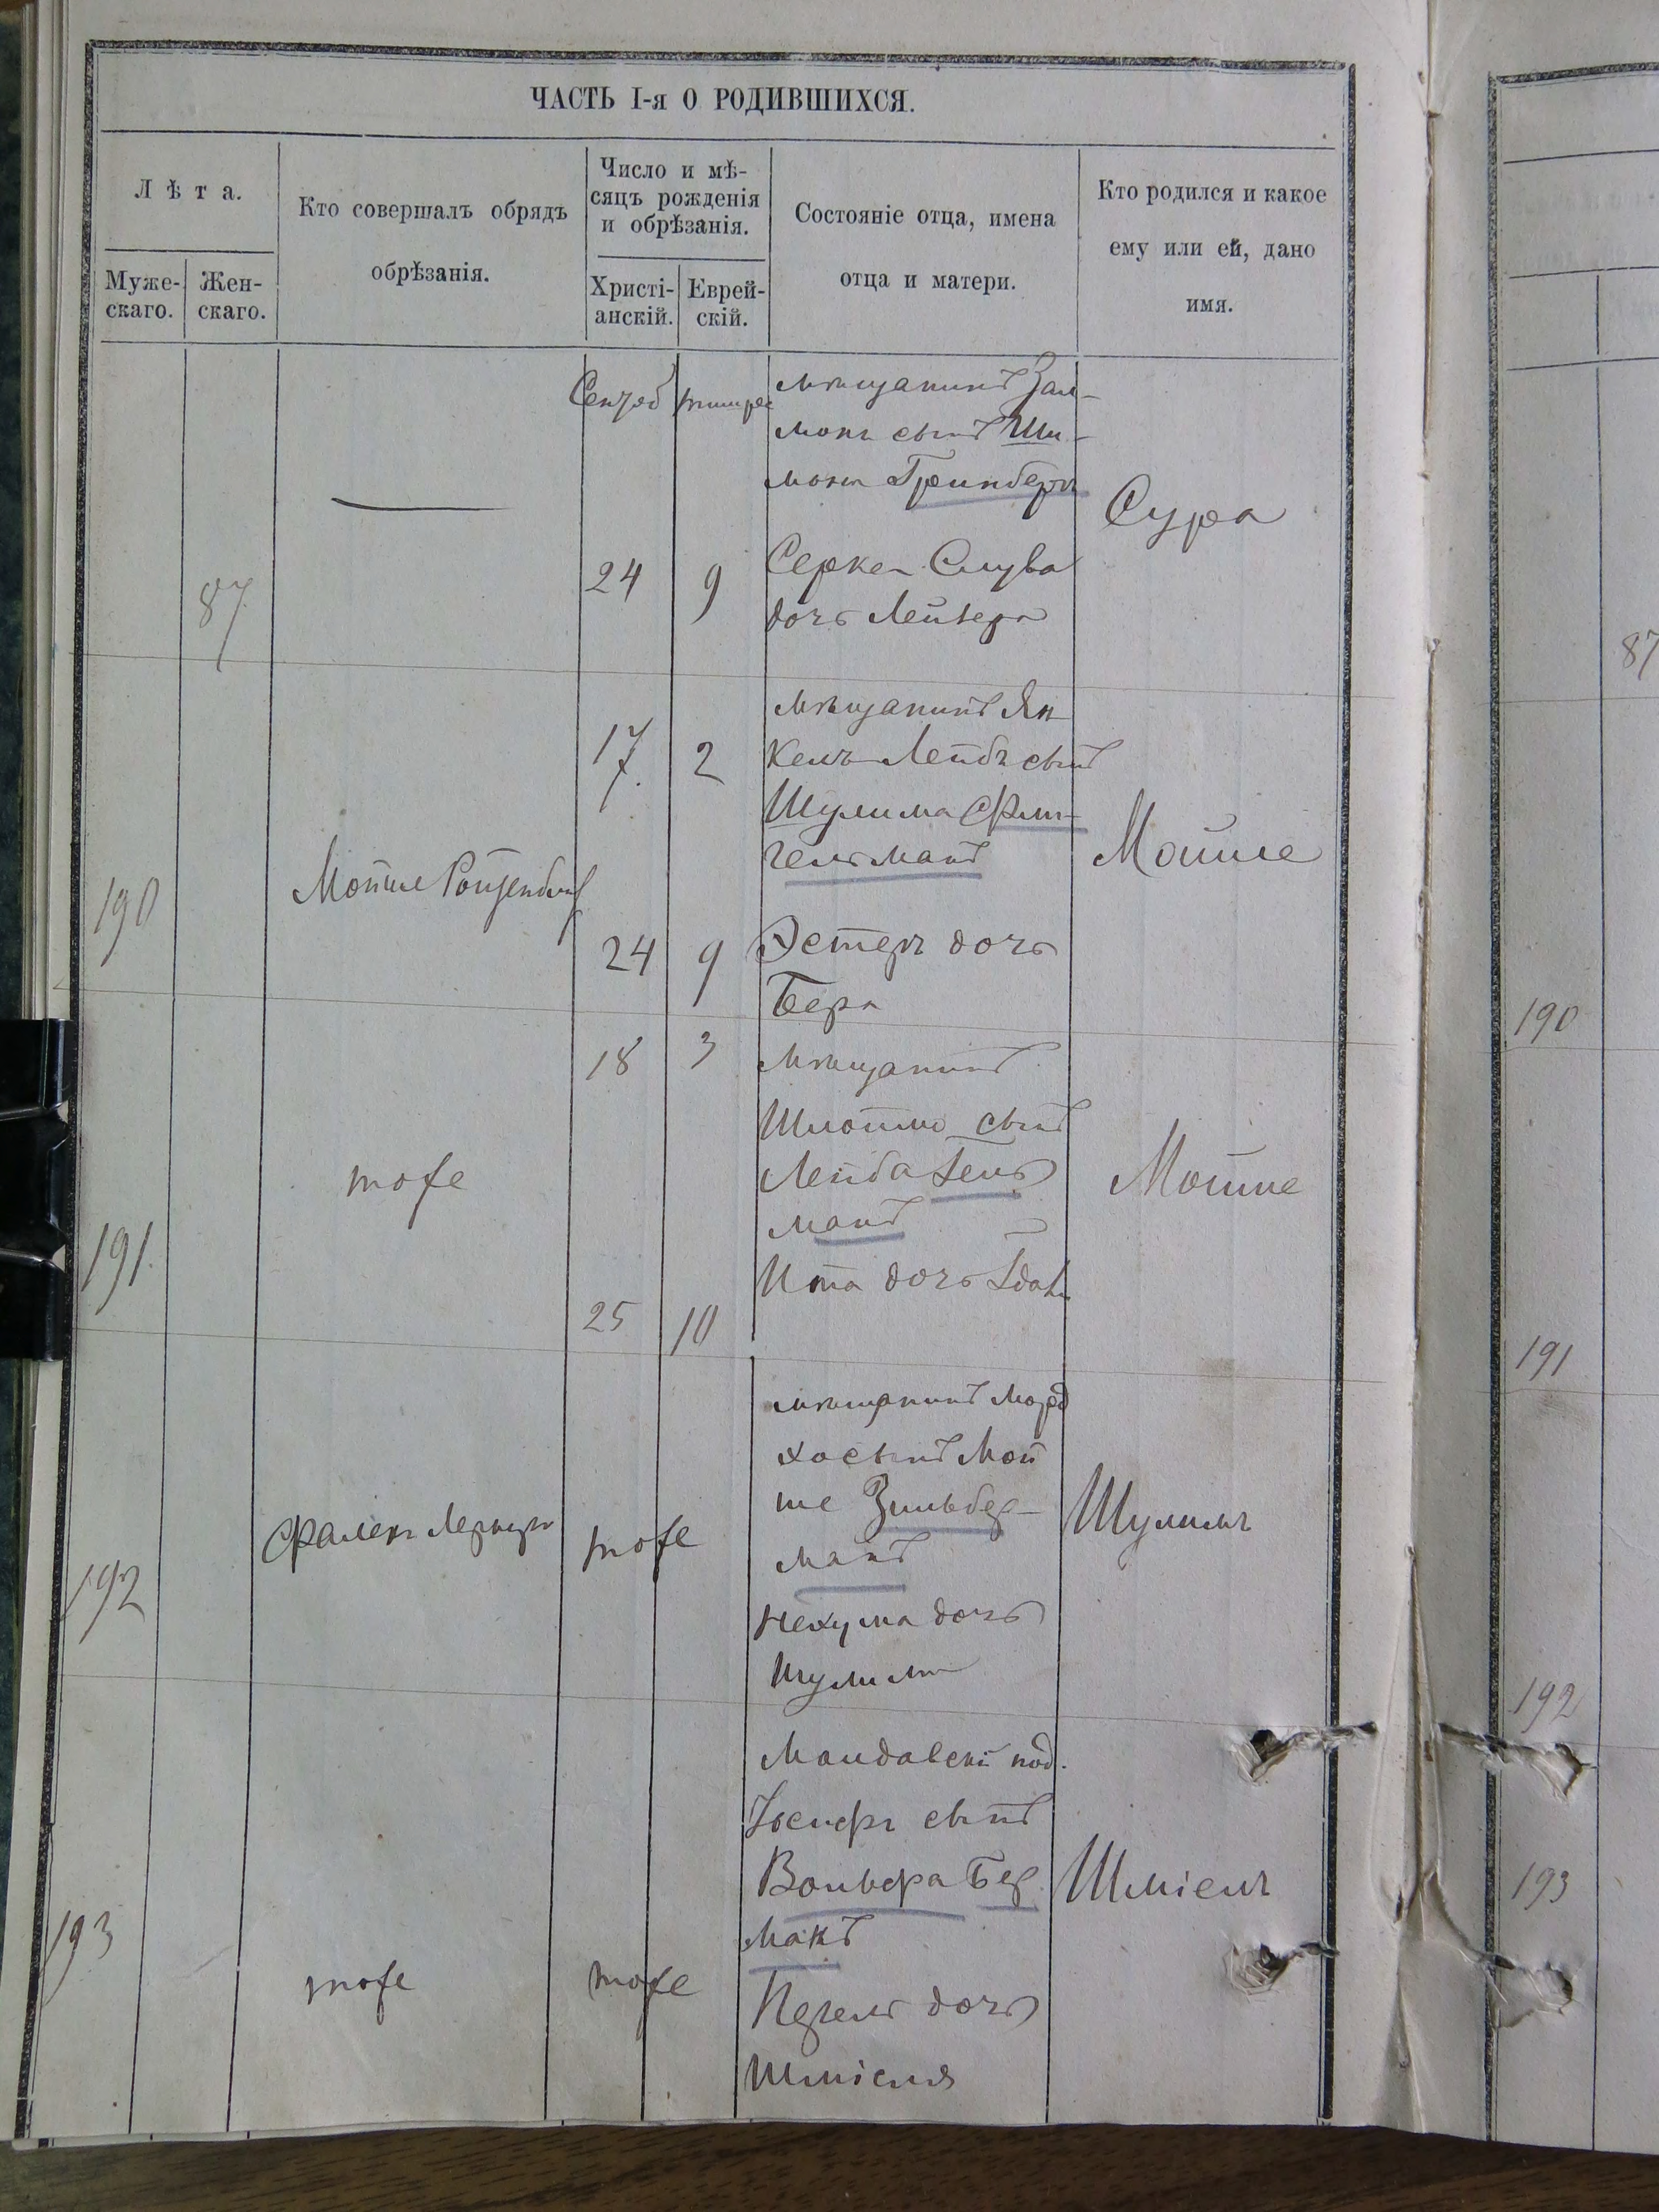 ЧАСТЬ I-я О РОДИВШИХСЯ.
Лѣта.
Муже-
скаго.
Жен-
скаго.
Кто совершалъ обрядъ
обрѣзанія.
Число и мѣ-
сяцъ рожденія
и обрѣзанія.
Христі-
анскій.
Еврей-
скій.
Состояніе отца, имена
отца и матери.
Кто родился и какое
ему или ей, дано
имя.
87
24
9
мѣщанинъ Зал-
монъ сынъ Ши-
мона Гринбергъ
Серка Слува
дочь Лейзера
Сура
190
Мойше
17
2
24
9
мѣщанинъ Ян
кель Лейбъ сынъ
Шулима
Эстеръ дочь
Бера
Мойше
191
тоже
18
3
25
10
мѣщанинъ
Шлойме сынъ
Лейба Гель
манъ
Ита дочь
Мойше
192
тоже
мѣщанинъ Морд
хо сынъ Мой
ше Зильбер-
манъ
Нехума дочь
Шулима
Шулимъ
193
тоже
тоже
Молдавскі под.
Іосифъ сынъ
Вольфа Бер
манъ
Перель дочь
Шміеля
Шміелъ
87
190
191
192
193